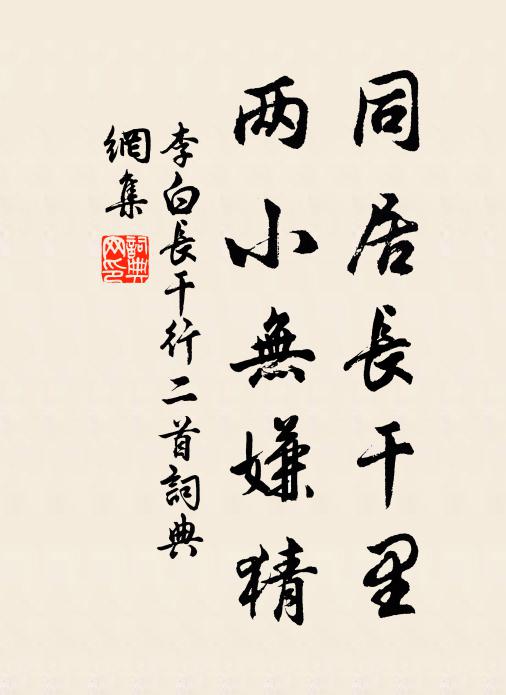 同居長干里
两小無嫌猜
李白長干行二首詞典
網集
詞典
网印